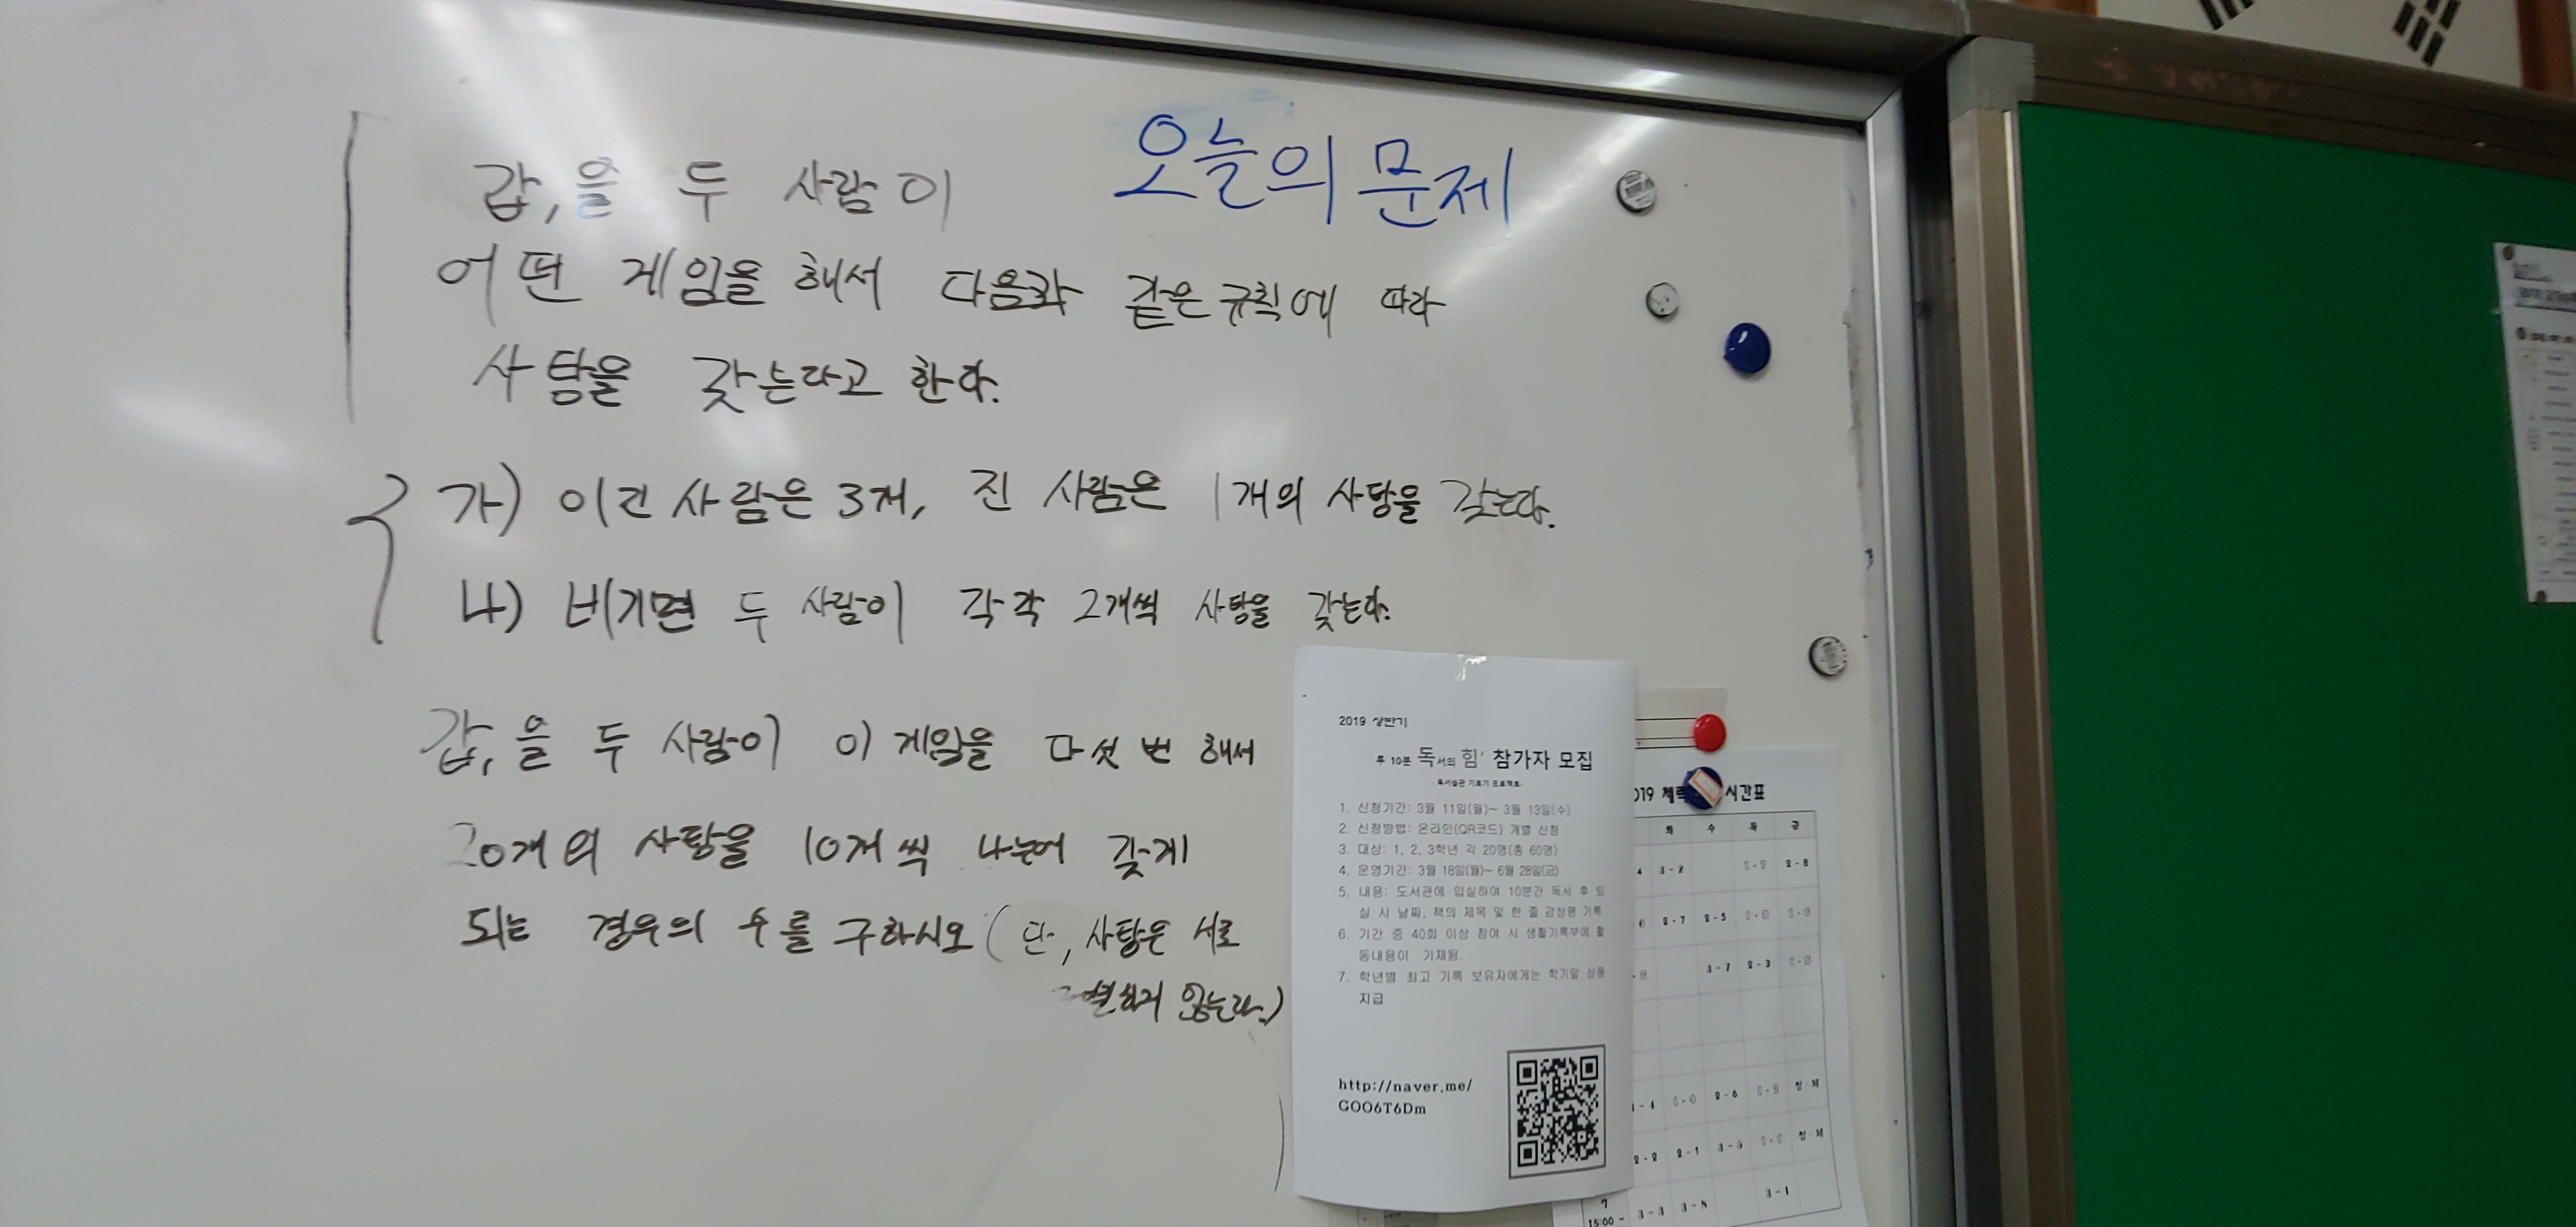 오늘의 문제
갑, 을 두 사람이
어떤 게임을 해서 다음과 같은 규칙에 따라
사탕을 갖는다고 한다.
가) 이긴 사람은 3개, 진 사람은 1개의 사탕을 갖는다.
나) 비기면 두 사람이 각각 2개씩 사탕을 갖는다.
갑, 을 두 사람이 이 게임을 다섯 번 해서
20개의 사탕을 10개씩 나누어 갖게
되는 경우의 수를 구하시오 (단, 사탕은 서로
별하지 않는다.)
2019 상반기
루 10분 독서의 힘' 참가자 모집
-독서습관 기르기 프로젝트-
1. 신청기간: 3월 11일(월)~ 3월 13일(수)
2. 신청방법: 온라인(QR코드) 개별 신청
3. 대상: 1, 2, 3학년 각 20명(총 60명)
4. 운영기간: 3월 18일(월)~ 6월 28일(금)
5. 내용: 도서관에 입실하여 10분간 독서 후 퇴
실 시 날짜, 책의 제목 및 한 줄 감상평 기록
6. 기간 중 40회 이상 참여 시 생활기록부에 활
동내용이 기재됨.
7. 학년별 최고 기록 보유자에게는 학기말 상품
지급
http://naver.me/
GOO6T6Dm
019 체력 시간표
화 수 목 금
4 3-2 2-8
6 2-7 2-5
3-7 2-3
2-6 창체
2-2 2-1 창체
3-1
7
15:00 - 3-3 3-8